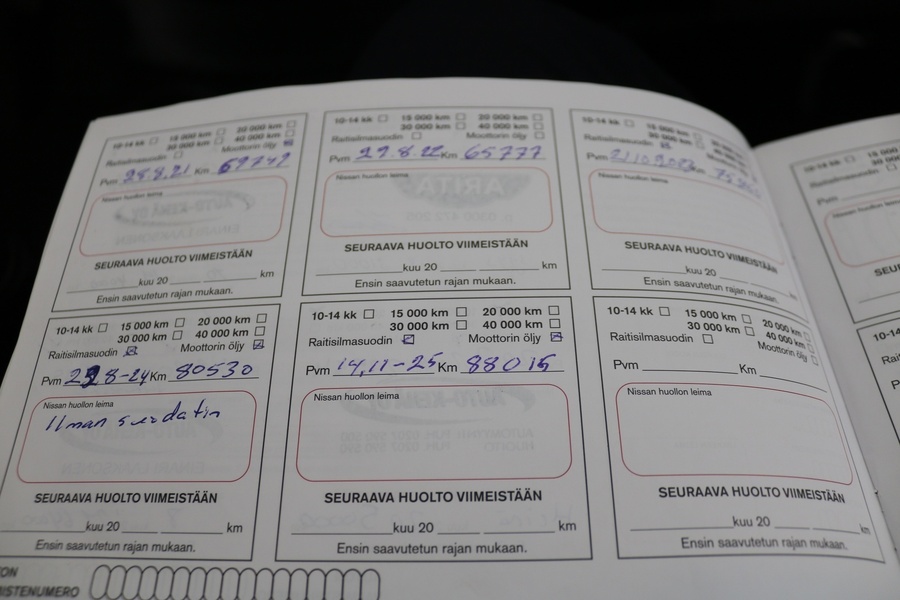 10-14 kk 15 000 km 20 000 km
30 000 km 40 000 km
Raitisilmasuodin Moottorin öljy
Pvm 28.8.21 Km 69742
Nissan huollon leima
SEURAAVA HUOLTO VIIMEISTÄÄN
kuu 20 km
Ensin saavutetun rajan mukaan.
10-14 kk 15 000 km 20 000 km
30 000 km 40 000 km
Raitisilmasuodin Moottorin öljy
Pvm 29.8.22 Km 65777
Nissan huollon leima
SEURAAVA HUOLTO VIIMEISTÄÄN
kuu 20 km
Ensin saavutetun rajan mukaan.
10-14 kk 15 000 km 20 000 km
30 000 km 40 000 km
Raitisilmasuodin
Pvm Km
Nissan huollon leima
SEURAAVA HUOLTO VIIMEISTÄÄN
kuu 20 km
Ensin saavutetun rajan mukaan.
10-14 kk 15 000 km 20 000 km
30 000 km 40 000 km
Raitisilmasuodin Moottorin öljy
Pvm 8-24 Km 80530
Nissan huollon leima
Ilman suodatin
SEURAAVA HUOLTO VIIMEISTÄÄN
kuu 20 km
Ensin saavutetun rajan mukaan.
10-14 kk 15 000 km 20 000 km
30 000 km 40 000 km
Raitisilmasuodin Moottorin öljy
Pvm 14,11-25 Km 88015
Nissan huollon leima
SEURAAVA HUOLTO VIIMEISTÄÄN
kuu 20 km
Ensin saavutetun rajan mukaan.
10-14 kk 15 000 km 20 000 km
30 000 km 40 000 km
Raitisilmasuodin Moottorin öljy
Pvm Km
Nissan huollon leima
SEURAAVA HUOLTO VIIMEISTÄÄN
kuu 20 km
Ensin saavutetun rajan mukaan.